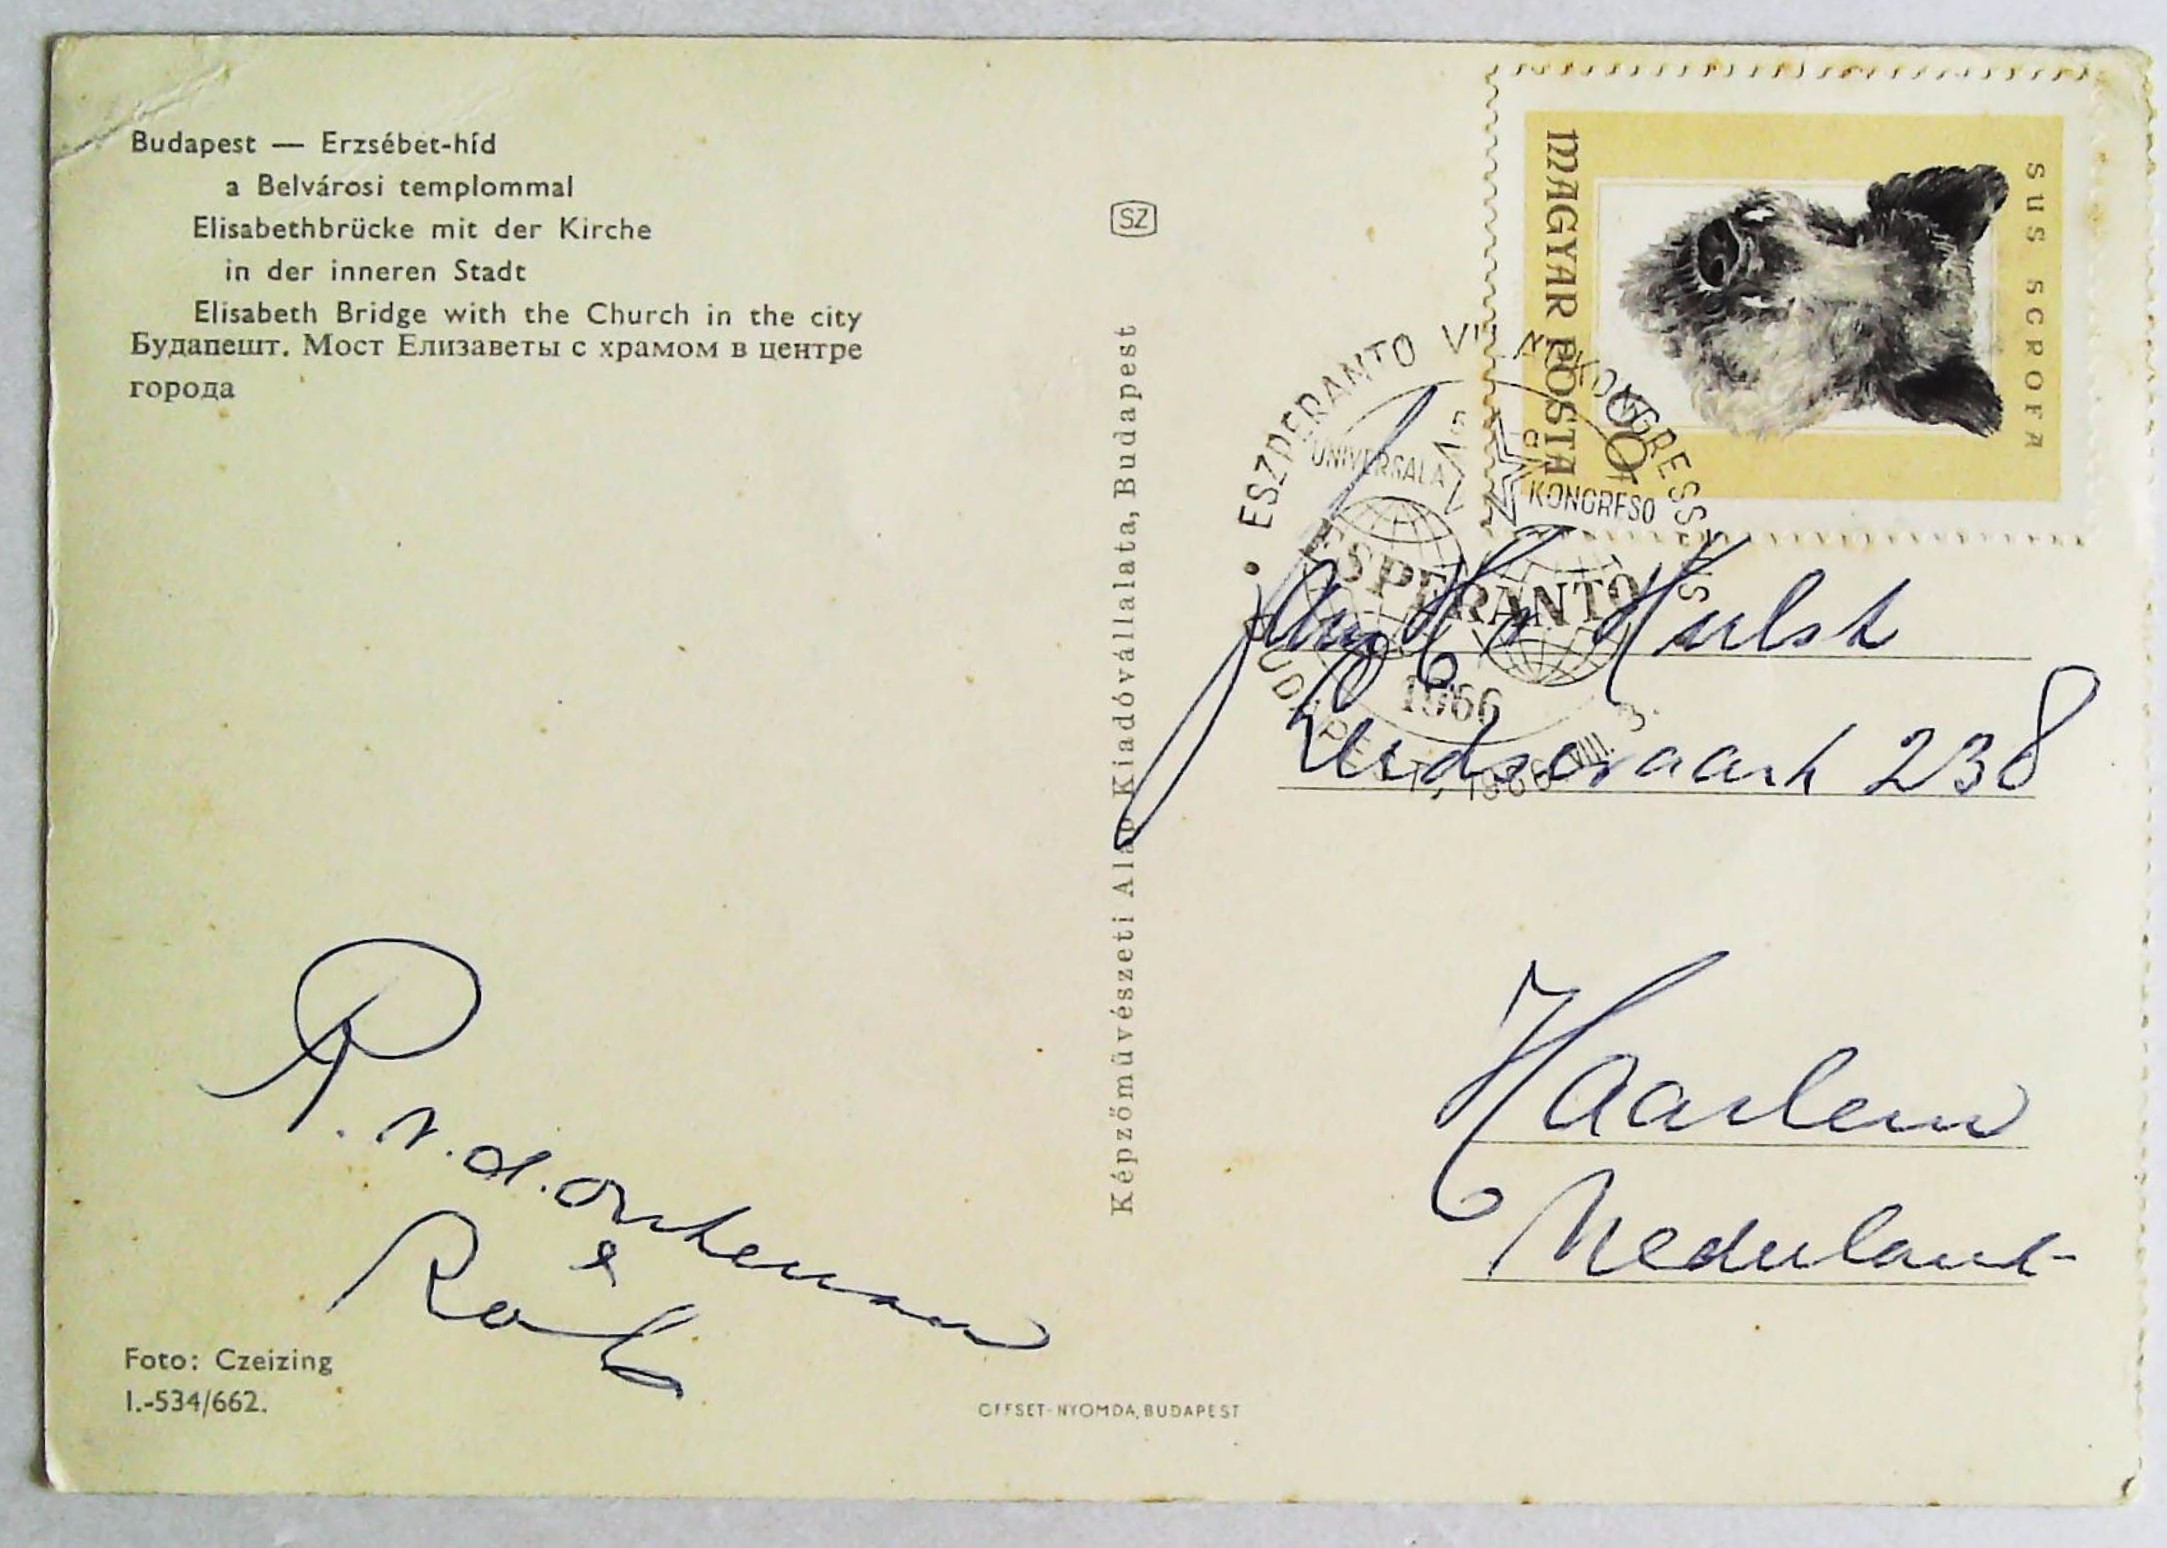 Budapest — Erzsébet-híd
a Belvárosi templommal
Elisabethbrücke mit der Kirche
in der inneren Stadt
Elisabeth Bridge with the Church in the city
Будапешт. Мост Елизаветы с храмом в центре
города
R. v. d.
&
Rob
Foto: Czeizing
I.-534/662.
SZ
Képzőművészeti Alap Kiadóvállalata, Budapest
OFFSET-NYOMDA, BUDAPEST
MAGYAR POSTA
SUS SCROFA
• ESZPERANTO VILÁGKONGRESSZUS
UNIVERSALA
KONGRESO
ESPERANTO
1966
BUDAPEST, 1966 VIII 3.
Hulst
Leidsevaart 238
Haarlem
Nederland